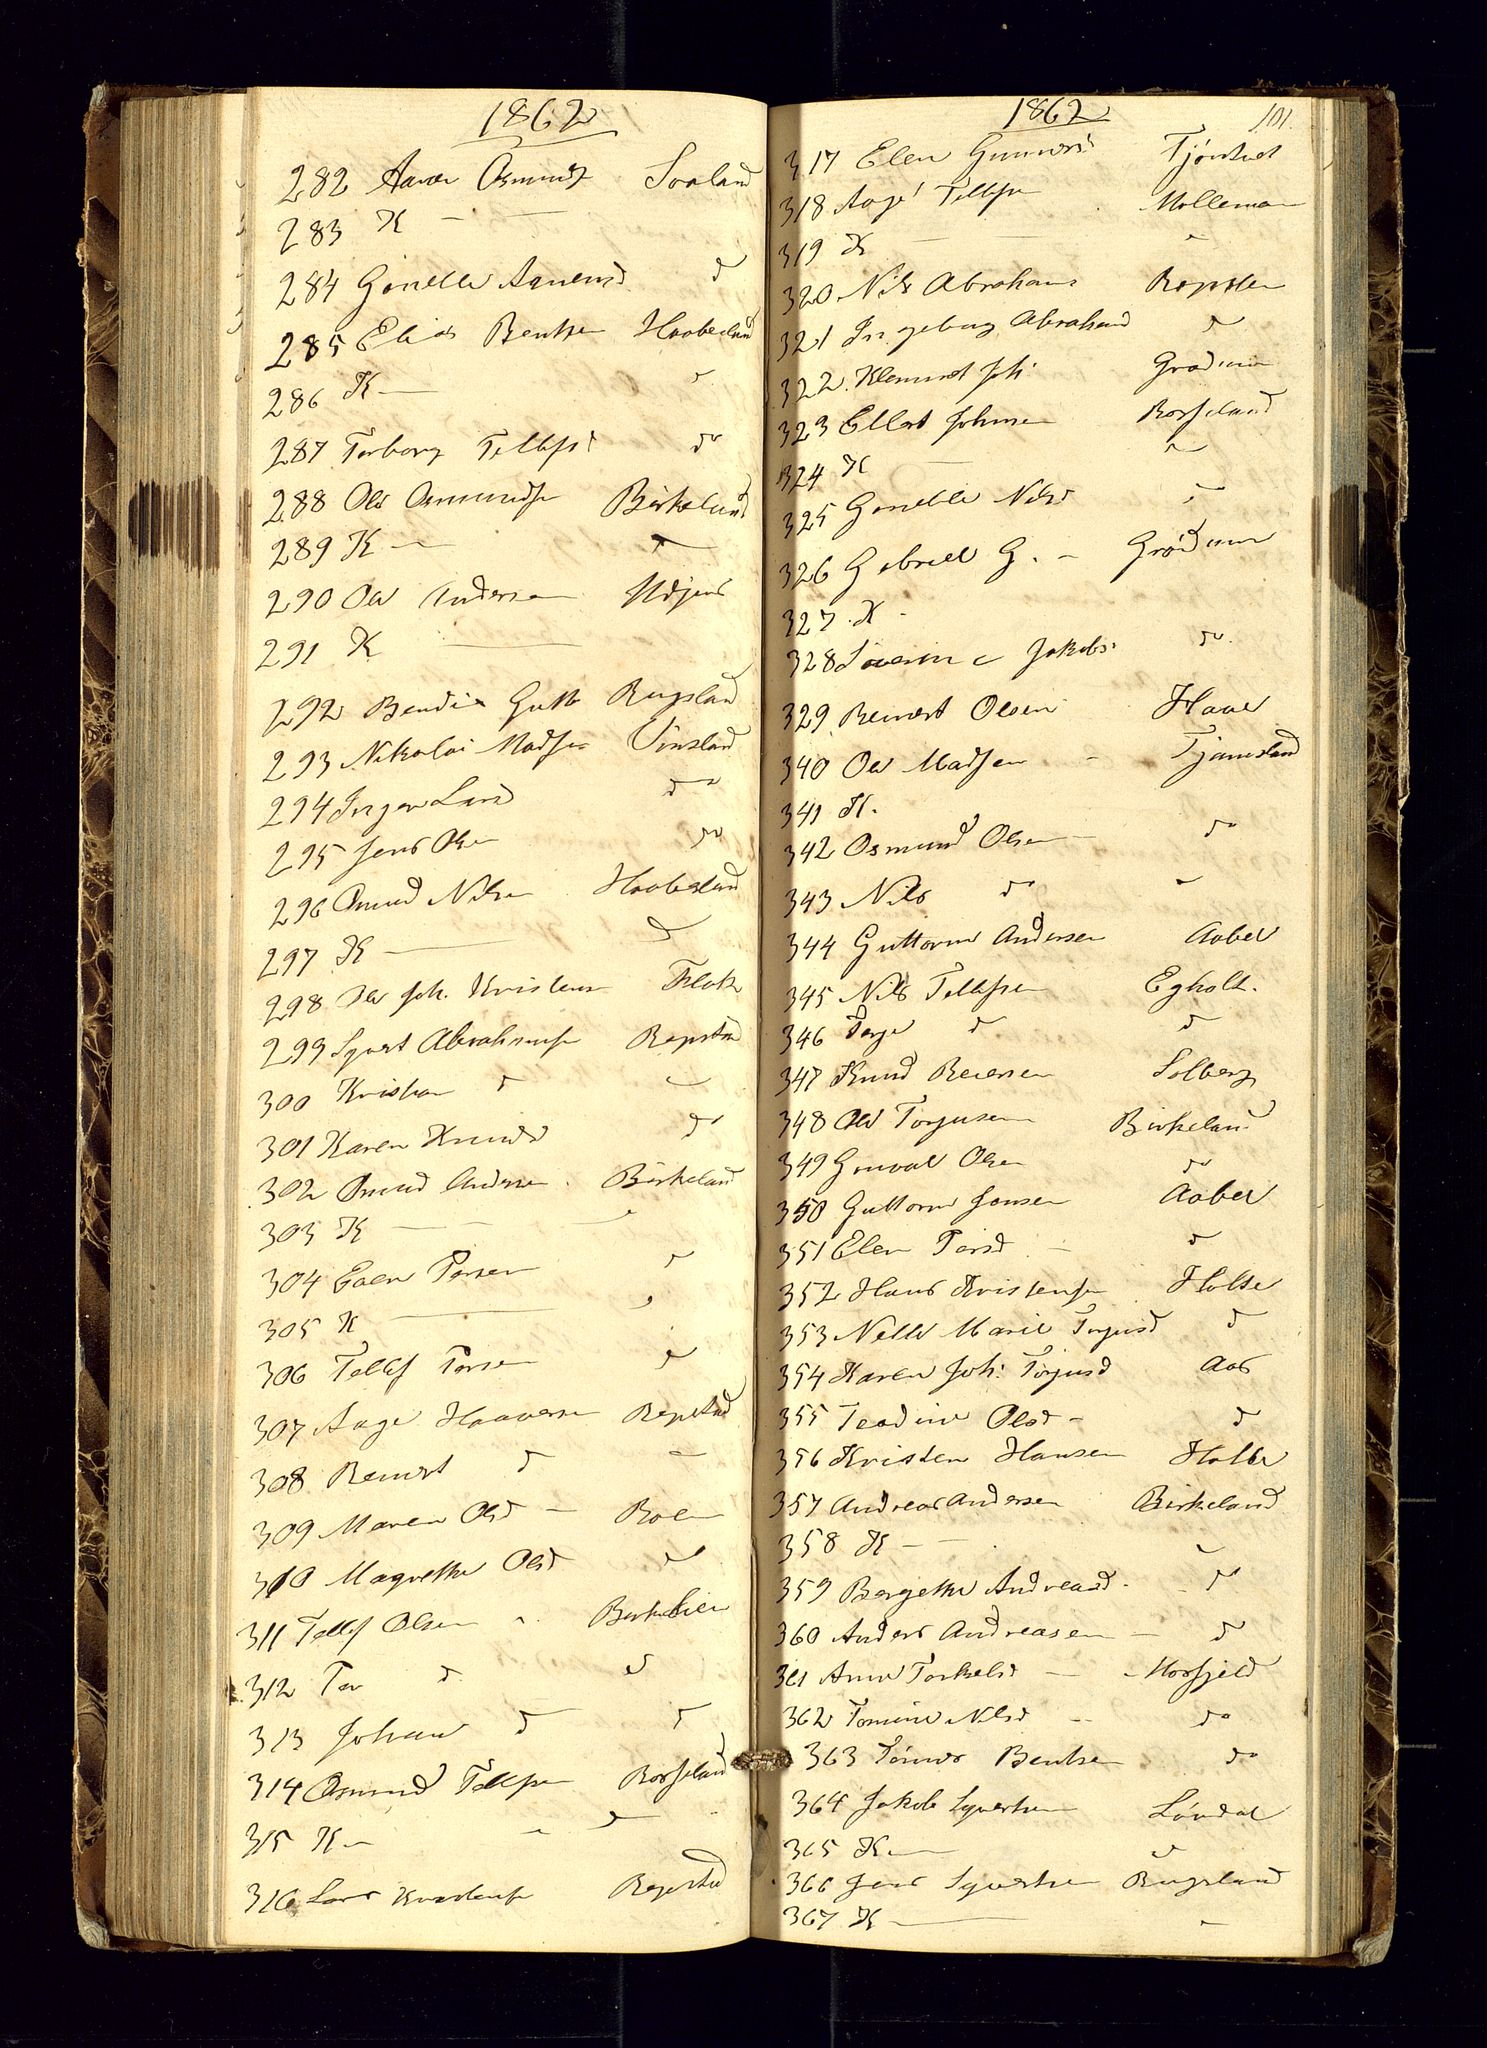 1862
282 Osmunds
283 K — —
284 Gunelle Aanensd d
285 Elias Bentsen Haabesland
286 K — "
287 Torborg Tellefsd do
288 Ole Osmundsen Birkeland
289 K — "
290 Ole Andersen
291 K —
292 Bendix Gutt Rugsland
293 Nikolai Madsen Vinsland
294 Larsd do
295 Jens Olsen do
296 Omund Nilsen Haabesland
297 K — d
298 Ole Joh. Kristens Flak
299 Syvert Abrahamsen Repstad
300 Kristian d "
301 Karen Knudsd do
302 Omund Andersen Birkeland
303 K — — "
304 Torsen d
305 K — "
306 Tellef Torsen d
307 Aage Haaversen Repstad
308 Reinert d —
309 Maren Olsd — Roen
310 Magrethe Olsd d
311 Tellef Olsen "
312 Tor d d
313 Johan d d
314 Osmund Tellefsen
315 K — — "
316 Lars Repstad
1862 101.
317 Elen Gunnersd
318 Aage Tellefsen Molleman
319 K — — "
320 Nils Abrahams Repsten
321 Ingeborg Abrahamsd d
322 Klemmet Joh.
323 Ellert Johnsen
324 K — "
325 Gunelle Nilsd d
326 Gabriel G. —
327 K -
328 Severine Jakobs do
329 Reinert Olsen Haae
340 Ole Madsen - Tjomsland
341 K.
342 Osmund Olsen — do
343 Nils d "
344 Guttorm Andersen Aabel
345 Nils Tellefsen Egholt.
346 Terje d d
347 Knud Reiersen Solberg
348 Ole Torjusen Birkeland
349 Gunval Olsen do
350 Guttorm Jensen Aabel
351 Elen Torsd — d
352 Hans Kristensen Holte
353 Nelle Marie Torjusd d
354 Karen Joh. Torjusd Aas
355 Teodine Olsd - d
356 Kristen Hansen Holte
357 Andreas Andersen Birkeland
358 K — — "
359 Bergethe Andreasd - do
360 Anders Andreasen — d
361 Anne Torkelsd —
362 Tomine Nilsd — do
363 Bentsen do
364 Jakob Syvertsen Løvdal
365 K — "
366 Jens Syvertsen Rugsland
367 K — "